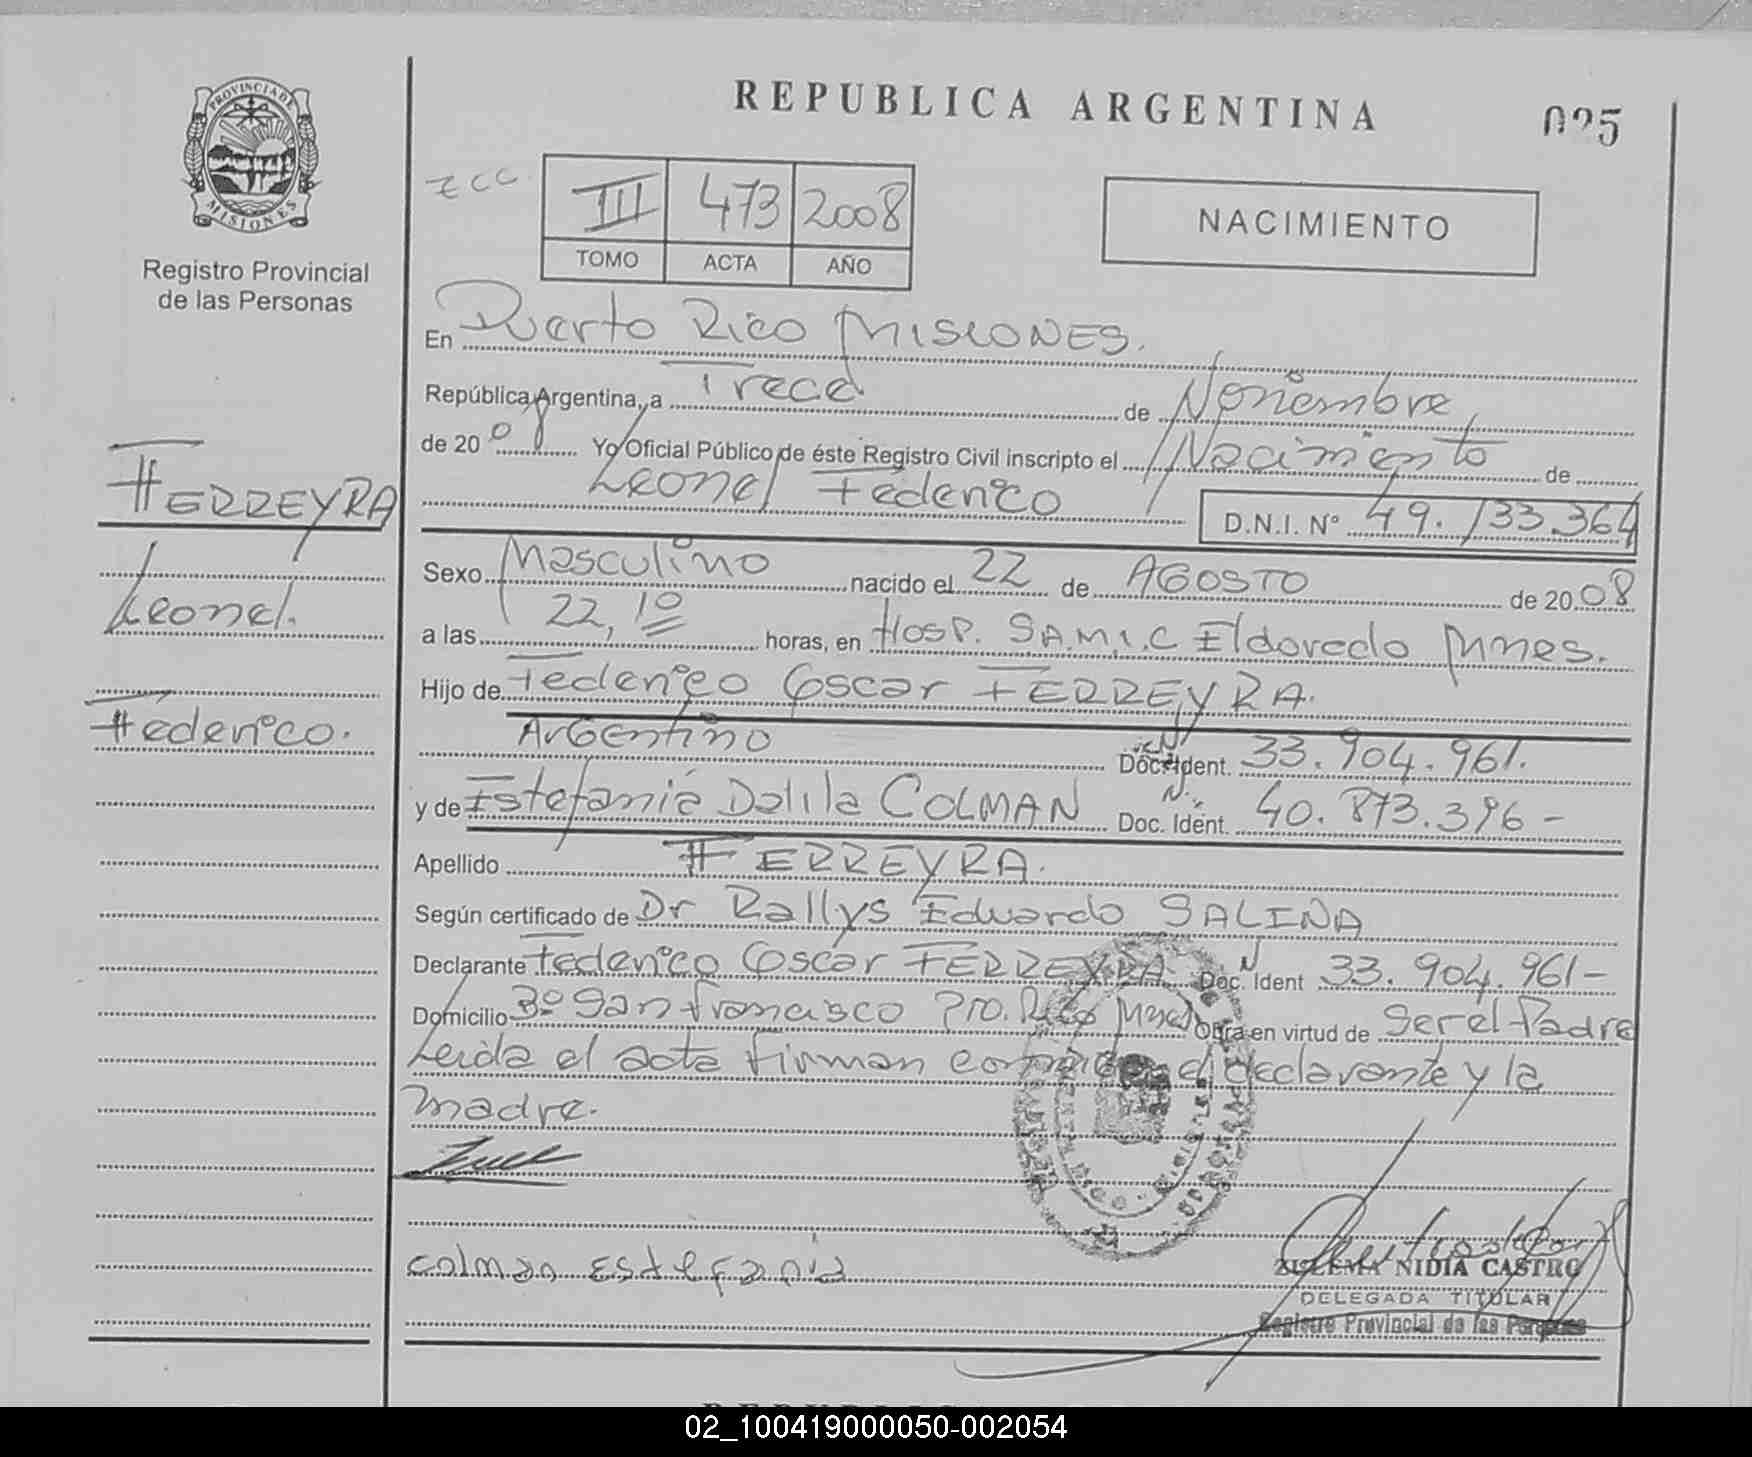 REPUBLICA ARGENTINA
025
PROVINCIA DE
MISIONES
Registro Provincial
de las Personas
ZCC
III 473 2008
TOMO ACTA AÑO
NACIMIENTO
En Puerto Rico MISIONES.
República Argentina, a Trece de Noviembre
de 20 08 Yo Oficial Público de éste Registro Civil inscripto el Nacimiento de
Leonel Federico D.N.I. Nº 49.133.364
FERREYRA
Leonel.
Federico.
Sexo Masculino nacido el 22 de AGOSTO de 20 08
a las 22,10 horas, en Hosp. S.A.M.I.C Eldorado Mnes.
Hijo de Federico Oscar FERREYRA.
Argentino Doc. Ident. 33.904.961.
y de Estefania Dalila COLMAN Doc. Ident. 40.873.396-
Apellido FERREYRA.
Según certificado de Dr Rallys Eduardo SALINA
Declarante Federico Oscar FERREYRA Doc. Ident 33.904.961-
Domicilio Bº San francisco Pto. Rico Mnes Obra en virtud de Ser el Padre
Leida el acta firman conmigo el declarante y la
madre.
colman Estefania
ZULEMA NIDIA CASTRO
DELEGADA TITULAR
Registro Provincial de las Personas
02_100419000050-002054